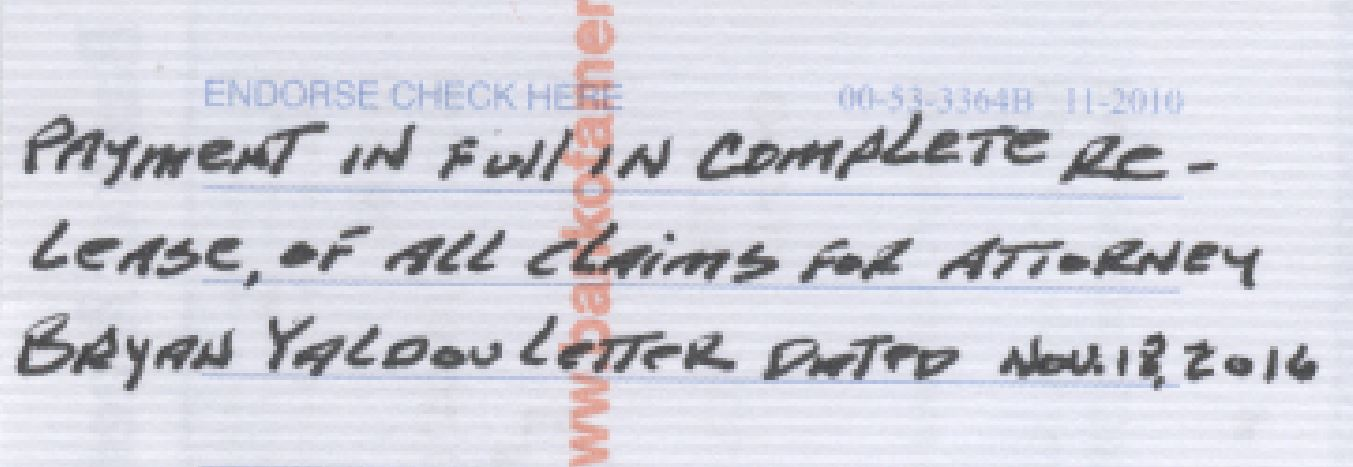 ENDORSE CHECK HERE 00-53-3364B 11-2010
PAYMENT IN FULL IN COMPLETE RE-
LEASE, OF ALL CLAIMS FOR ATTORNEY
BRYAN YALDOU LETTER DATED NOV. 18, 2016
www.bankofamer